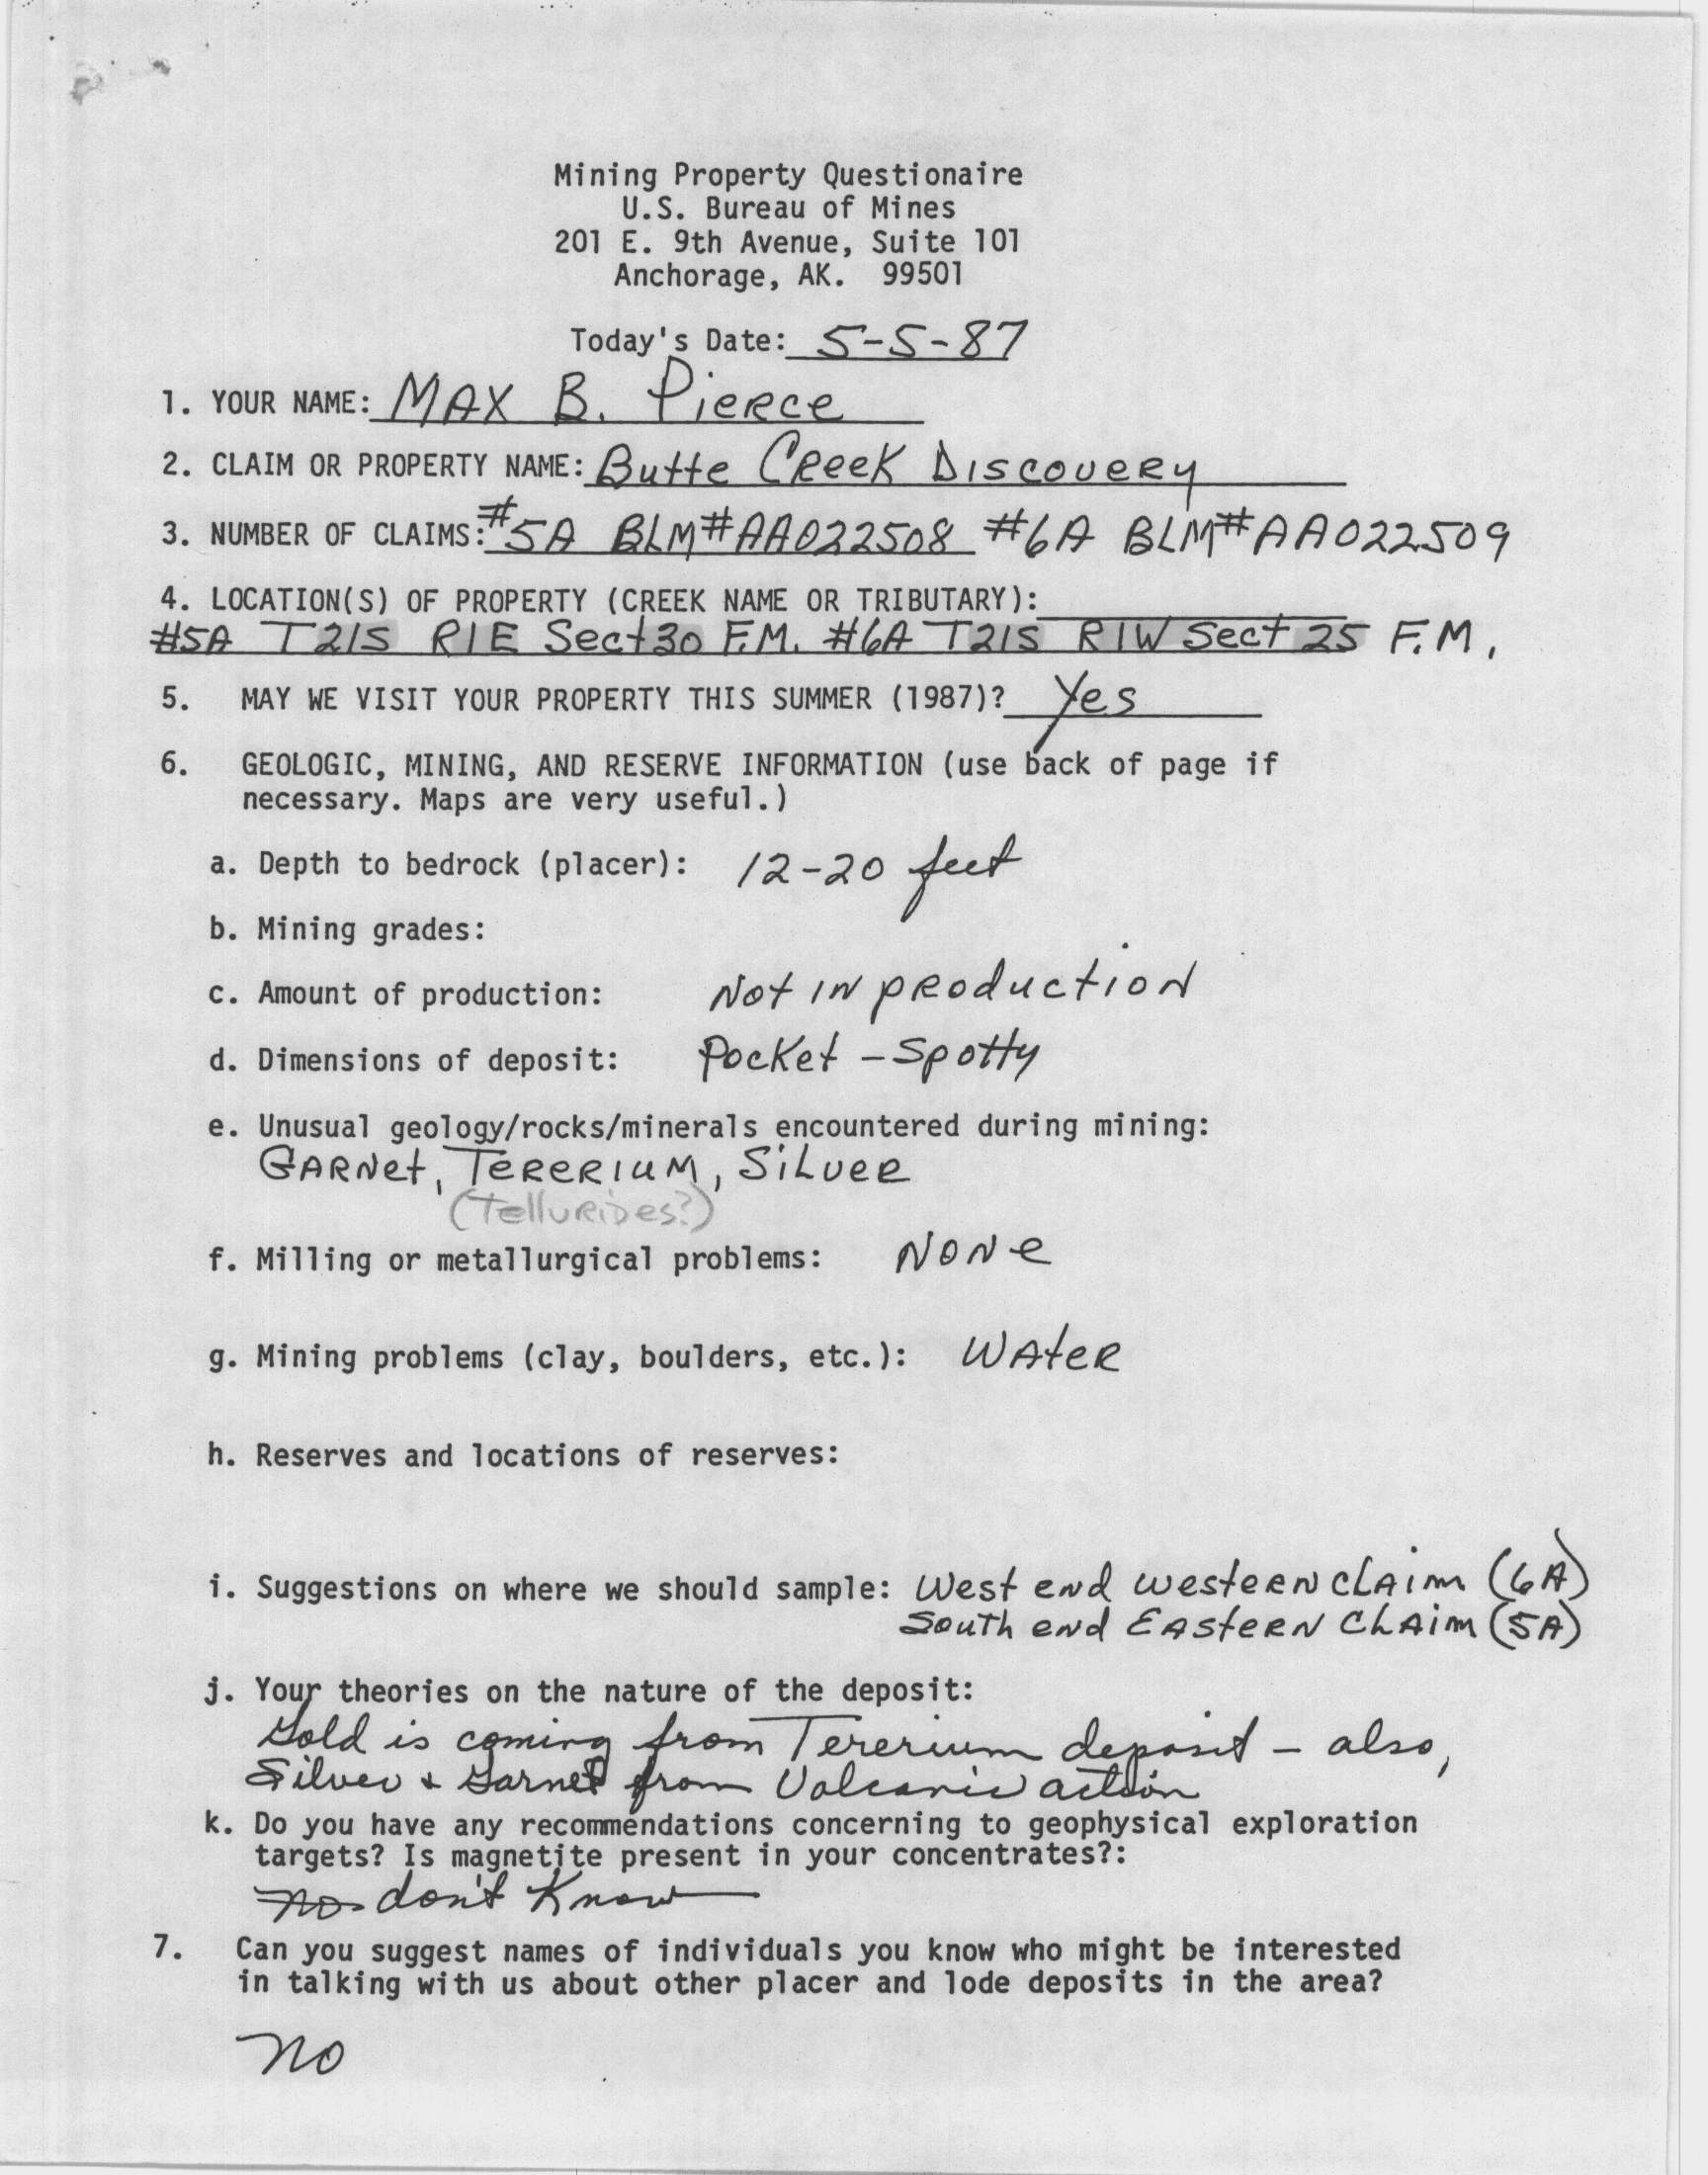 Mining Property Questionaire
U.S. Bureau of Mines
201 E. 9th Avenue, Suite 101
Anchorage, AK. 99501
Today's Date: 5-5-87
1. YOUR NAME: MAX B. PiERCe
2. CLAIM OR PROPERTY NAME: Butte CReeK DISCOVERY
3. NUMBER OF CLAIMS: #5A BLM#AA022508 #6A BLM#AA022509
4. LOCATION(S) OF PROPERTY (CREEK NAME OR TRIBUTARY):
#5A T21S R1E Sect 30 F.M. #6A T21S R1W Sect 25 F.M.
5. MAY WE VISIT YOUR PROPERTY THIS SUMMER (1987)? Yes
6. GEOLOGIC, MINING, AND RESERVE INFORMATION (use back of page if
necessary. Maps are very useful.)
a. Depth to bedrock (placer): 12-20 feet
b. Mining grades:
c. Amount of production: Not IN pRoductioN
d. Dimensions of deposit: Pocket - Spotty
e. Unusual geology/rocks/minerals encountered during mining:
GARNet, TeReRIuM, SiLveR
(TelluRiDes?)
f. Milling or metallurgical problems: NoNe
g. Mining problems (clay, boulders, etc.): WAteR
h. Reserves and locations of reserves:
i. Suggestions on where we should sample: West eNd westeRN cLAim (6A)
South eNd EAsteRN CLAim (5A)
j. Your theories on the nature of the deposit:
Gold is coming from Tererium deposit - also,
Silver & Garnet from Volcanic action
k. Do you have any recommendations concerning to geophysical exploration
targets? Is magnetite present in your concentrates?:
no don't Know
7. Can you suggest names of individuals you know who might be interested
in talking with us about other placer and lode deposits in the area?
no